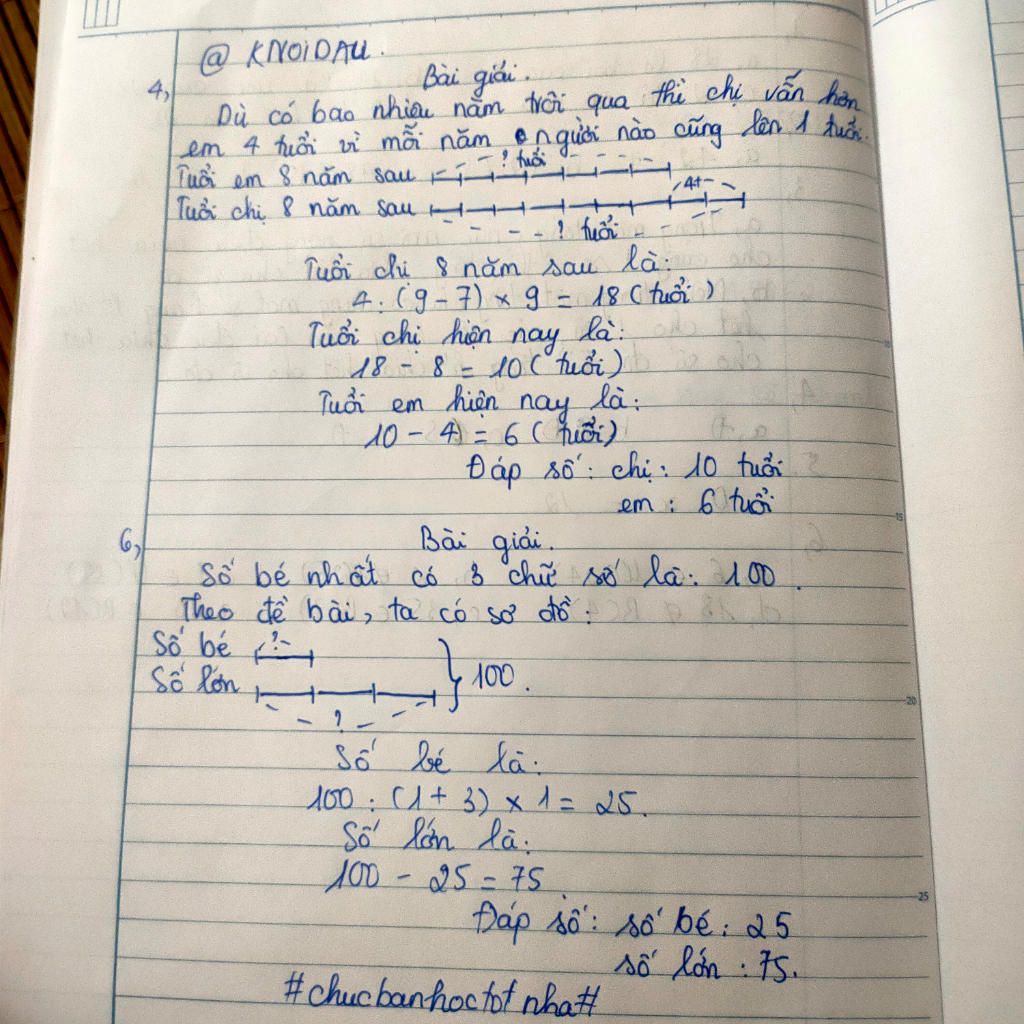 @ KNOIDAU.
Bài giải.
4, Dù có bao nhiêu năm trôi qua thì chị vẫn hơn
em 4 tuổi vì mỗi năm người nào cũng lên 1 tuổi.
? tuổi
Tuổi em 8 năm sau
4t
Tuổi chị 8 năm sau
? tuổi
Tuổi chị 8 năm sau là:
4 : (9 - 7) × 9 = 18 (tuổi)
Tuổi chị hiện nay là:
18 - 8 = 10 (tuổi)
Tuổi em hiện nay là:
10 - 4 = 6 (tuổi)
Đáp số: chị: 10 tuổi
em: 6 tuổi
6, Bài giải.
Số bé nhất có 3 chữ số là: 100.
Theo đề bài, ta có sơ đồ:
?
Số bé
Số lớn
100.
?
Số bé là:
100 : (1 + 3) × 1 = 25.
Số lớn là:
100 - 25 = 75.
Đáp số: số bé: 25
số lớn: 75.
#chucbanhoctot nha#